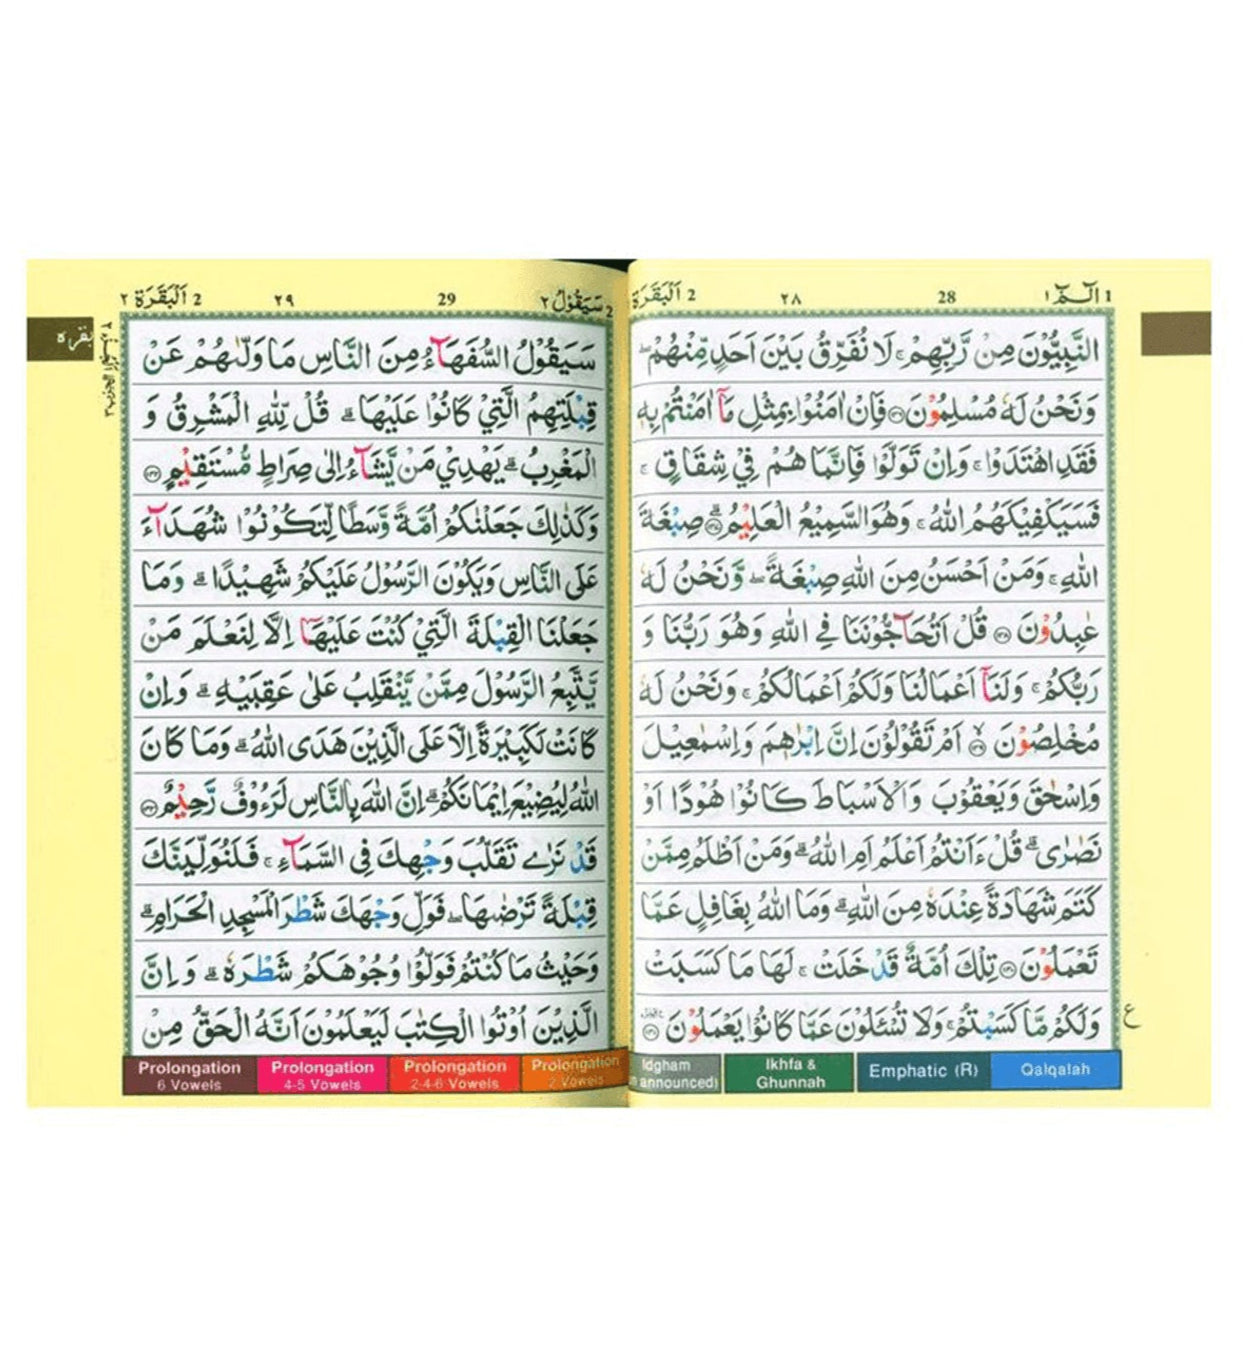 1 الٓمّٓ ١
28
٢٨
2 اَلْبَقَرَة
النَّبِيُّوْنَ مِنْ رَّبِّهِمْ ۚ لَا نُفَرِّقُ بَيْنَ اَحَدٍ مِّنْهُمْ ۖ
وَنَحْنُ لَهٗ مُسْلِمُوْنَ ﴿۱۳۶﴾ فَاِنْ اٰمَنُوْا بِمِثْلِ مَاۤ اٰمَنْتُمْ بِهٖ
فَقَدِ اهْتَدَوْا ۚ وَاِنْ تَوَلَّوْا فَاِنَّمَا هُمْ فِيْ شِقَاقٍ ۚ
فَسَيَكْفِيْكَهُمُ اللّٰهُ ۚ وَهُوَ السَّمِيْعُ الْعَلِيْمُ ﴿۱۳۷﴾ صِبْغَةَ
اللّٰهِ ۚ وَمَنْ اَحْسَنُ مِنَ اللّٰهِ صِبْغَةً ۖ وَّنَحْنُ لَهٗ
عٰبِدُوْنَ ﴿۱۳۸﴾ قُلْ اَتُحَآجُّوْنَنَا فِي اللّٰهِ وَهُوَ رَبُّنَا وَ
رَبُّكُمْ ۚ وَلَنَاۤ اَعْمَالُنَا وَلَكُمْ اَعْمَالُكُمْ ۚ وَنَحْنُ لَهٗ
مُخْلِصُوْنَ ﴿۱۳۹﴾ اَمْ تَقُوْلُوْنَ اِنَّ اِبْرٰهٖمَ وَاِسْمٰعِيْلَ
وَاِسْحٰقَ وَيَعْقُوْبَ وَالْاَسْبَاطَ كَانُوْا هُوْدًا اَوْ
نَصٰرٰى ؕ قُلْ ءَاَنْتُمْ اَعْلَمُ اَمِ اللّٰهُ ؕ وَمَنْ اَظْلَمُ مِمَّنْ
كَتَمَ شَهَادَةً عِنْدَهٗ مِنَ اللّٰهِ ؕ وَمَا اللّٰهُ بِغَافِلٍ عَمَّا
تَعْمَلُوْنَ ﴿۱۴۰﴾ تِلْكَ اُمَّةٌ قَدْ خَلَتْ ۚ لَهَا مَا كَسَبَتْ
وَلَكُمْ مَّا كَسَبْتُمْ ۚ وَلَا تُسْئَلُوْنَ عَمَّا كَانُوْا يَعْمَلُوْنَ ﴿۱۴۱﴾
ع
Idgham
announced)
Ikhfa &
Ghunnah
Emphatic (R)
Qalqalah
2 سَيَقُوْلُ ٢
29
٢٩
2 اَلْبَقَرَة ٢
بقره
سَيَقُوْلُ السُّفَهَآءُ مِنَ النَّاسِ مَا وَلّٰىهُمْ عَنْ
قِبْلَتِهِمُ الَّتِيْ كَانُوْا عَلَيْهَا ؕ قُلْ لِّلّٰهِ الْمَشْرِقُ وَ
الْمَغْرِبُ ؕ يَهْدِيْ مَنْ يَّشَآءُ اِلٰى صِرَاطٍ مُّسْتَقِيْمٍ ﴿۱۴۲﴾
وَكَذٰلِكَ جَعَلْنٰكُمْ اُمَّةً وَّسَطًا لِّتَكُوْنُوْا شُهَدَآءَ
عَلَى النَّاسِ وَيَكُوْنَ الرَّسُوْلُ عَلَيْكُمْ شَهِيْدًا ؕ وَمَا
جَعَلْنَا الْقِبْلَةَ الَّتِيْ كُنْتَ عَلَيْهَاۤ اِلَّا لِنَعْلَمَ مَنْ
يَّتَّبِعُ الرَّسُوْلَ مِمَّنْ يَّنْقَلِبُ عَلٰى عَقِبَيْهِ ؕ وَاِنْ
كَانَتْ لَكَبِيْرَةً اِلَّا عَلَى الَّذِيْنَ هَدَى اللّٰهُ ؕ وَمَا كَانَ
اللّٰهُ لِيُضِيْعَ اِيْمَانَكُمْ ؕ اِنَّ اللّٰهَ بِالنَّاسِ لَرَءُوْفٌ رَّحِيْمٌ ﴿۱۴۳﴾
قَدْ نَرٰى تَقَلُّبَ وَجْهِكَ فِي السَّمَآءِ ۚ فَلَنُوَلِّيَنَّكَ
قِبْلَةً تَرْضٰىهَا ۖ فَوَلِّ وَجْهَكَ شَطْرَ الْمَسْجِدِ الْحَرَامِ ؕ
وَحَيْثُ مَا كُنْتُمْ فَوَلُّوْا وُجُوْهَكُمْ شَطْرَهٗ ؕ وَاِنَّ
الَّذِيْنَ اُوْتُوا الْكِتٰبَ لَيَعْلَمُوْنَ اَنَّهُ الْحَقُّ مِنْ
Prolongation
6 Vowels
Prolongation
4-5 Vowels
Prolongation
2-4-6 Vowels
Prolongation
2 Vowels